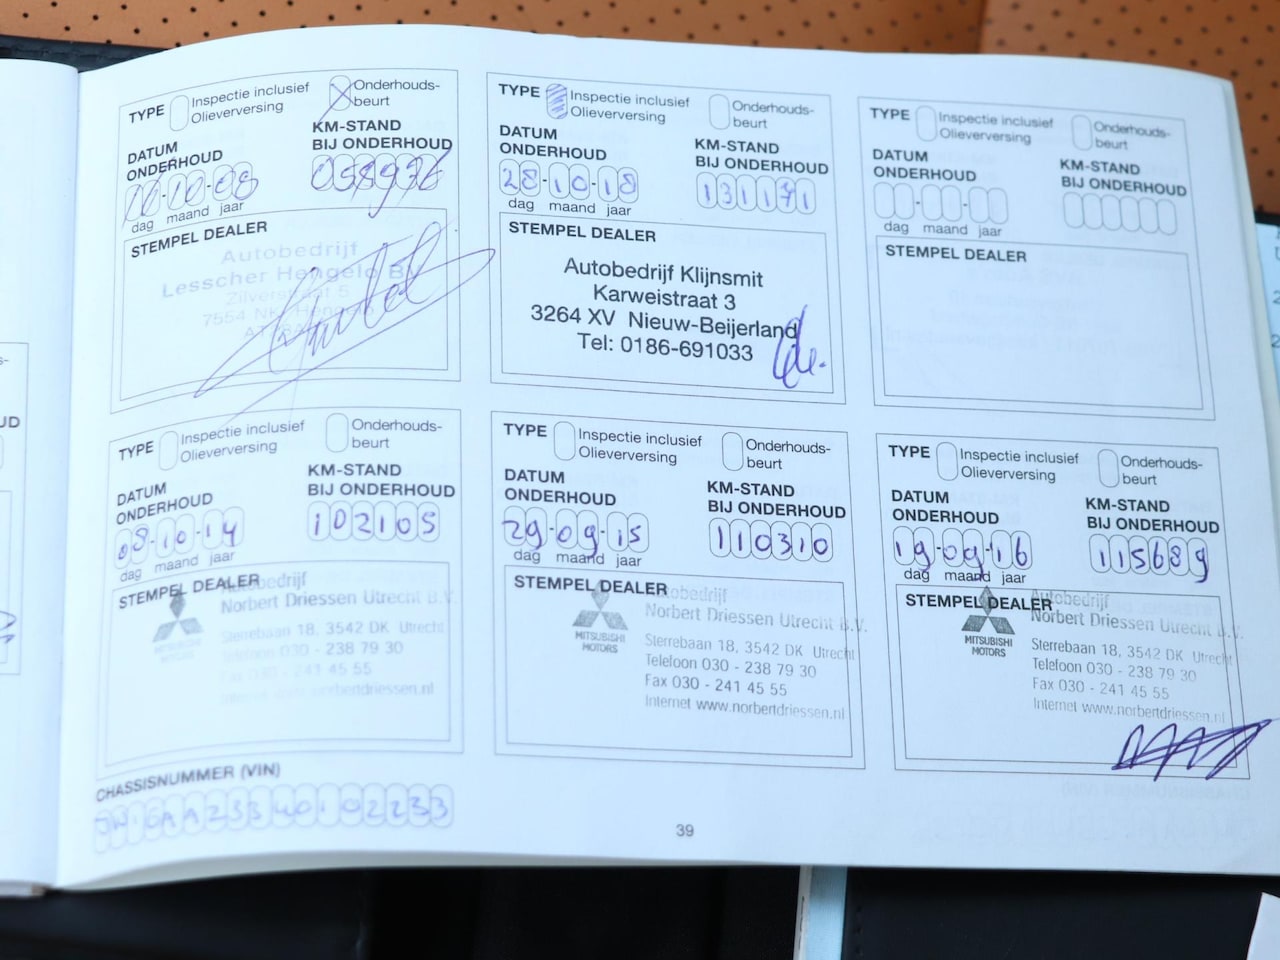 TYPE Inspectie inclusief Olieverversing Onderhouds-beurt
DATUM ONDERHOUD
KM-STAND BIJ ONDERHOUD
10-08
dag maand jaar
STEMPEL DEALER
Autobedrijf
Lesscher Hengelo BV
Zilverstraat 5
7554 NK Hengelo
TYPE Inspectie inclusief Olieverversing Onderhouds-beurt
DATUM ONDERHOUD
KM-STAND BIJ ONDERHOUD
28-10-18
131171
dag maand jaar
STEMPEL DEALER
Autobedrijf Klijnsmit
Karweistraat 3
3264 XV Nieuw-Beijerland
Tel: 0186-691033
TYPE Inspectie inclusief Olieverversing Onderhouds-beurt
DATUM ONDERHOUD
KM-STAND BIJ ONDERHOUD
dag maand jaar
STEMPEL DEALER
TYPE Inspectie inclusief Olieverversing Onderhouds-beurt
DATUM ONDERHOUD
KM-STAND BIJ ONDERHOUD
08-10-14
102105
dag maand jaar
STEMPEL DEALER
Autobedrijf
Norbert Driessen Utrecht B.V.
MITSUBISHI MOTORS
Sterrebaan 18, 3542 DK Utrecht
Telefoon 030 - 238 79 30
Fax 030 - 241 45 55
Internet www.norbertdriessen.nl
TYPE Inspectie inclusief Olieverversing Onderhouds-beurt
DATUM ONDERHOUD
KM-STAND BIJ ONDERHOUD
29-09-15
110310
dag maand jaar
STEMPEL DEALER
Autobedrijf
Norbert Driessen Utrecht B.V.
MITSUBISHI MOTORS
Sterrebaan 18, 3542 DK Utrecht
Telefoon 030 - 238 79 30
Fax 030 - 241 45 55
Internet www.norbertdriessen.nl
TYPE Inspectie inclusief Olieverversing Onderhouds-beurt
DATUM ONDERHOUD
KM-STAND BIJ ONDERHOUD
19-09-16
115689
dag maand jaar
STEMPEL DEALER
Autobedrijf
Norbert Driessen Utrecht B.V.
MITSUBISHI MOTORS
Sterrebaan 18, 3542 DK Utrecht
Telefoon 030 - 238 79 30
Fax 030 - 241 45 55
Internet www.norbertdriessen.nl
CHASSISNUMMER (VIN)
39